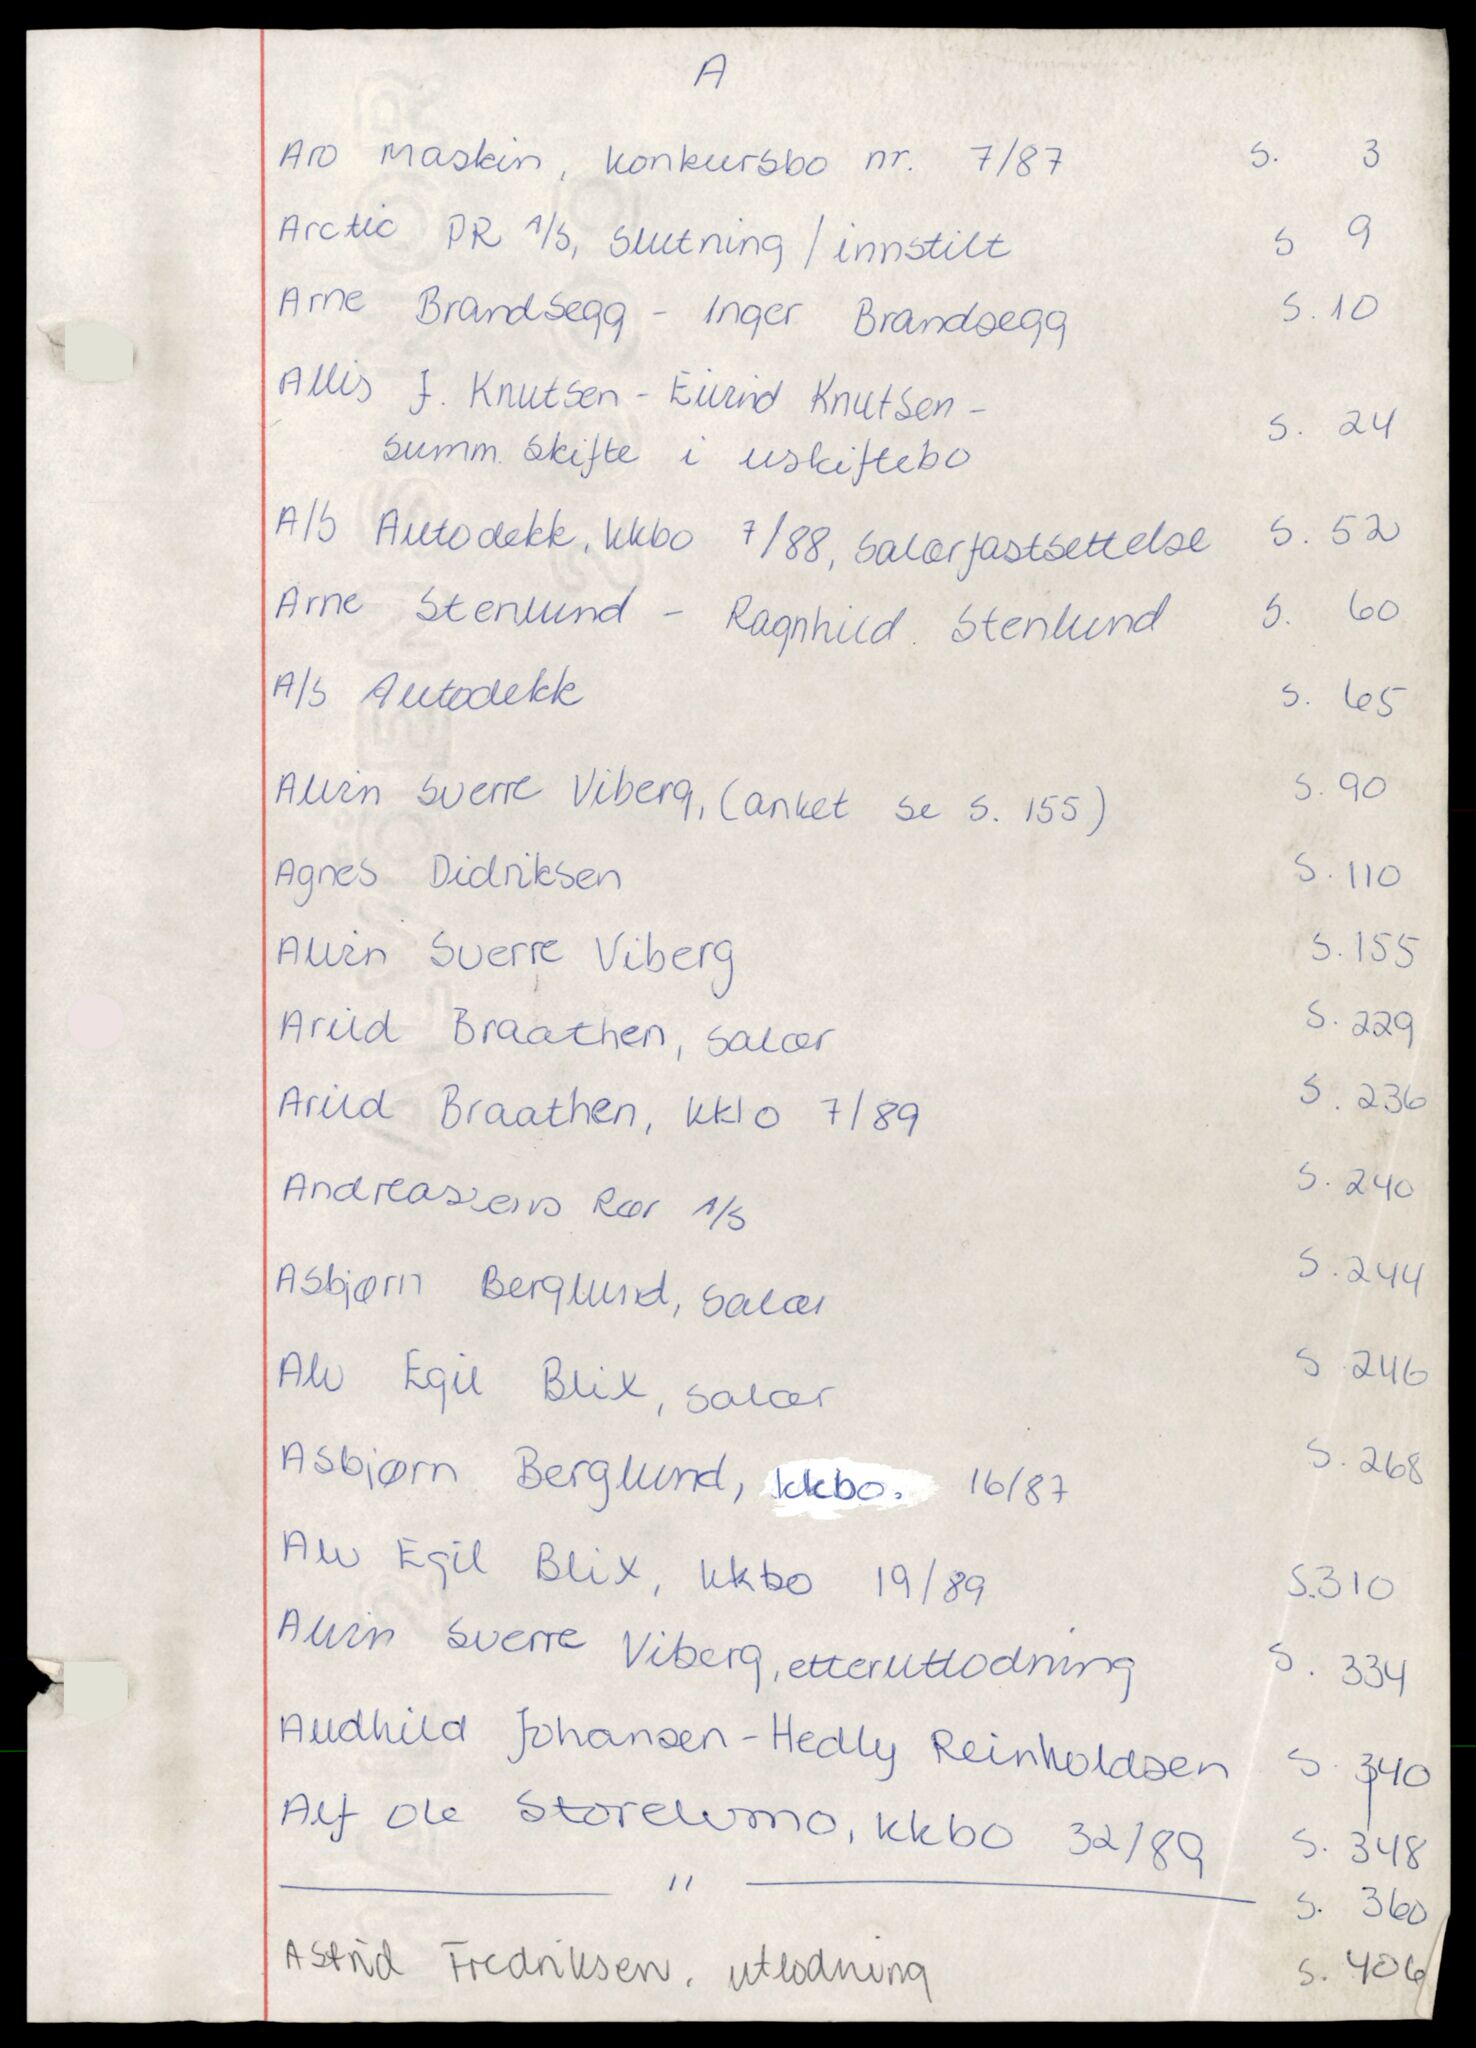 A
Aro Maskin, konkursbo nr. 7/87 s. 3
Arctic PR A/S, slutning / innstilt s 9
Arne Brandsegg - Inger Brandsegg s. 10
Allis J. Knutsen - Eivind Knutsen -
summ. skifte i uskiftebo s. 24
A/S Autodekk, kkbo 7/88, salærfastsettelse s. 52
Arne Stenlund - Ragnhild Stenlund s. 60
A/S Autodekk s. 65
Alvin Sverre Viberg, (anket se s. 155) s. 90
Agnes Didriksen s. 110
Alvin Sverre Viberg s. 155
Arild Braathen, salær s. 229
Arild Braathen, kkbo 7/89 s. 236
Andreassens Rør A/S s. 240
Asbjørn Berglund, salær s. 244
Alv Egil Blix, salær s. 246
Asbjørn Berglund, kkbo. 16/87 s. 268
Alv Egil Blix, kkbo 19/89 s. 310
Alvin Sverre Viberg, etterutlodning s. 334
Audhild Johansen - Hedly Reinholdsen s. 340
Alf Ole Storelvmo, kkbo 32/89 s. 348
" s. 360
Astrid Fredriksen, utlodning s. 406